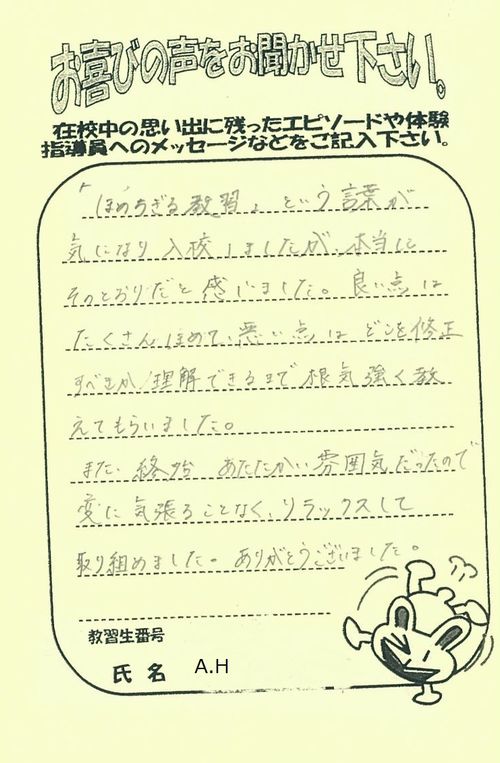 お喜びの声をお聞かせ下さい。
在校中の思い出に残ったエピソードや体験
指導員へのメッセージなどをご記入下さい。
「ほめちぎる教習」という言葉が
気になり入校しましたが、本当に
そのとおりだと感じました。良い点は
たくさんほめて、悪い点はどこを修正
すべきか理解できるまで根気強く教
えてもらいました。
また、終始あたたかい雰囲気だったので
変に気張ることなく、リラックスして
取り組めました。ありがとうございました。
教習生番号
氏名 A.H